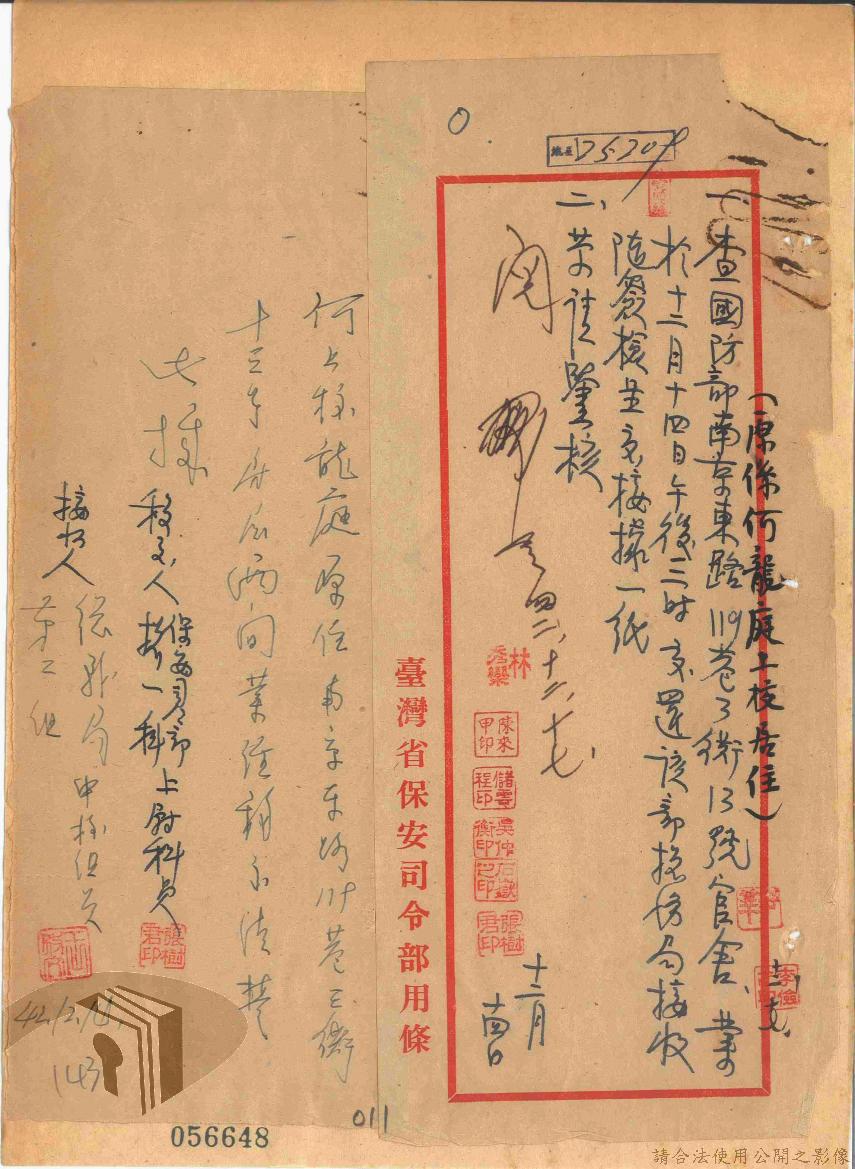 D5209
(原係何龍庭上校居住)
一、查國防部南京東路119巷3衖13號官舍、業
於十二月十四日午後三時交還該部總務局接收
隨簽檢呈交接據一紙
二、恭請鑒核
閱
四二、十二、十七、
林秀欒
陳來甲印
儲雲程印
吳仲衡印
張樹君印
十二月
十四日
李儉
臺灣省保安司令部用條
何上校龍庭原住南京東路119巷三衖
十三號房屋兩間業經移交清楚
此據
移交人 保安司令部上尉科員
張樹君印
接收人
總務局中校組員
第二組
42.12.14.
1430
011
056648
請合法使用公開之影像